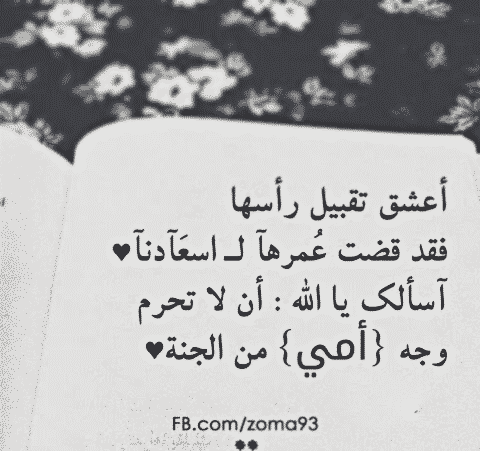 أعشق تقبيل رأسها
فقد قضت عُمرهآ لـ اسعَآدنآ♥
آسألك يا الله : أن لا تحرم
وجه {أمي} من الجنة♥
FB.com/zoma93